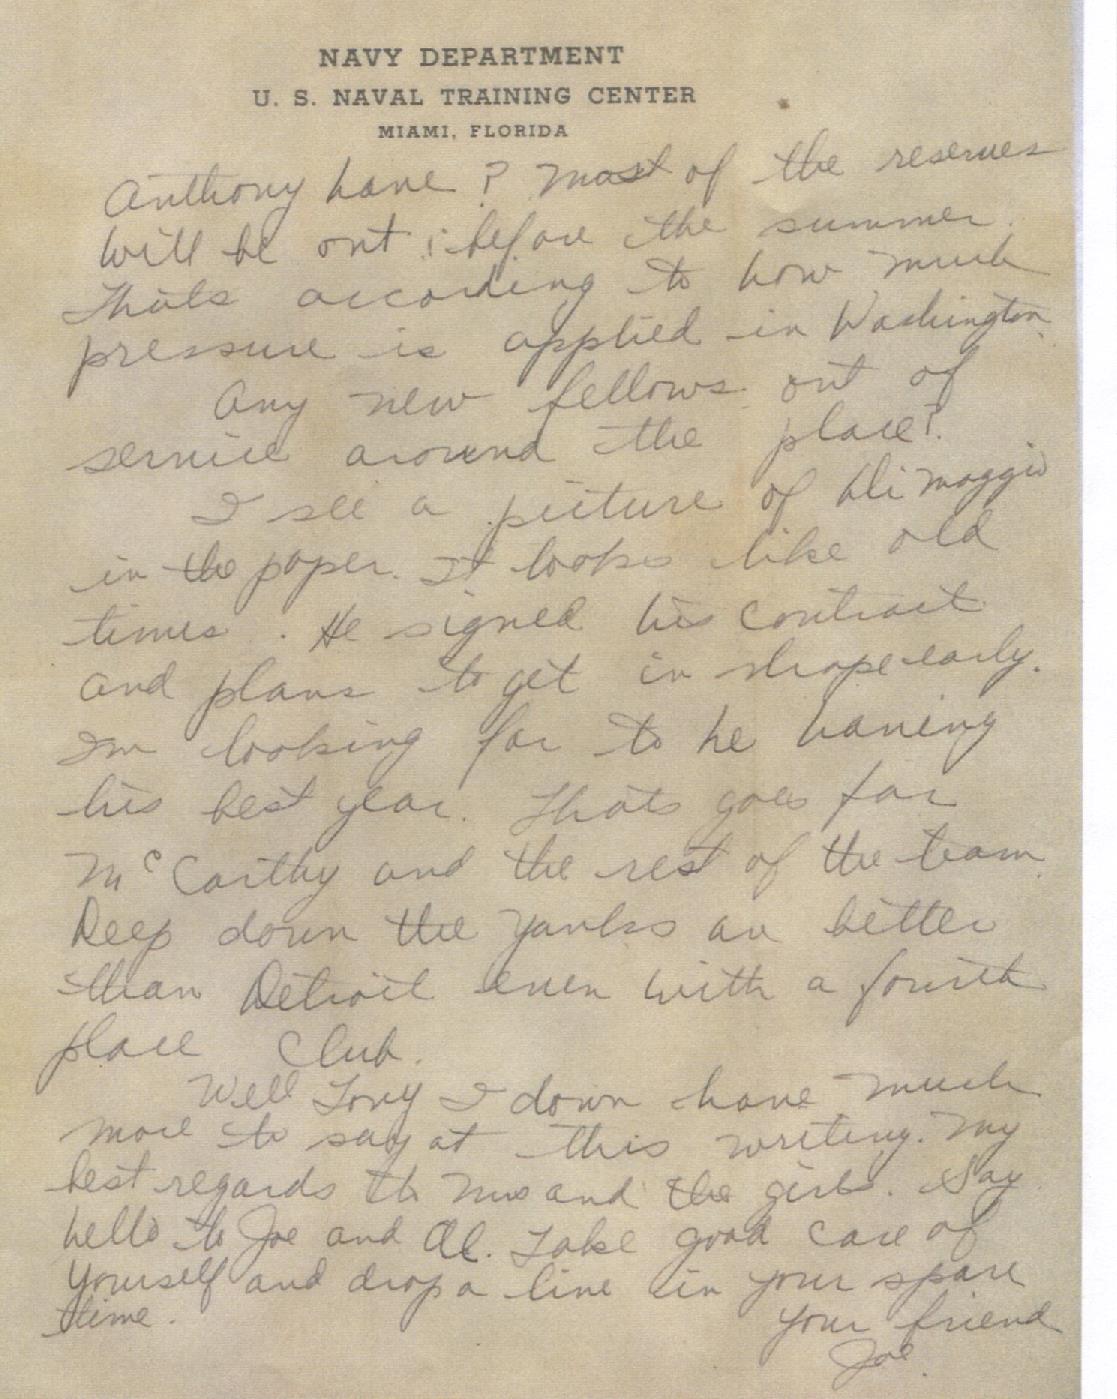 NAVY DEPARTMENT
U. S. NAVAL TRAINING CENTER
MIAMI, FLORIDA
Anthony have? Most of the reserves
will be out before the summer.
Thats according to how much
pressure is applied in Washington.
Any new fellows out of
service around the place?
I see a picture of DiMaggio
in the paper. It looks like old
times. He signed his contract
and plans to get in shape early.
Im looking for to he having
his best year. Thats goes for
McCarthy and the rest of the team.
Deep down the Yanks are better
than Detroit even with a fourth
place Club.
Well Tony I down have much
more to say at this writing. My
best regards to Mrs and the girls. Say
hello to Joe and Al. Take good care of
yourself and drop a line in your spare
time.
Your friend
Joe